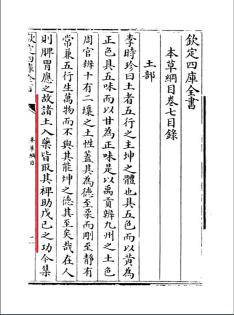 欽定四庫全書
本草綱目卷七目錄
土部
李時珍曰土者五行之主坤之體也具五色而以黄為
正色具五味而以甘為正味是以禹貢辨九州之土色
周官辨十有二壤之土性蓋其為德至柔而剛至静有
常兼五行生萬物而不與其能坤之德其至矣哉在人
則脾胃應之故諸土入藥皆取其裨助戊己之功今集
欽定四庫全書
本草綱目